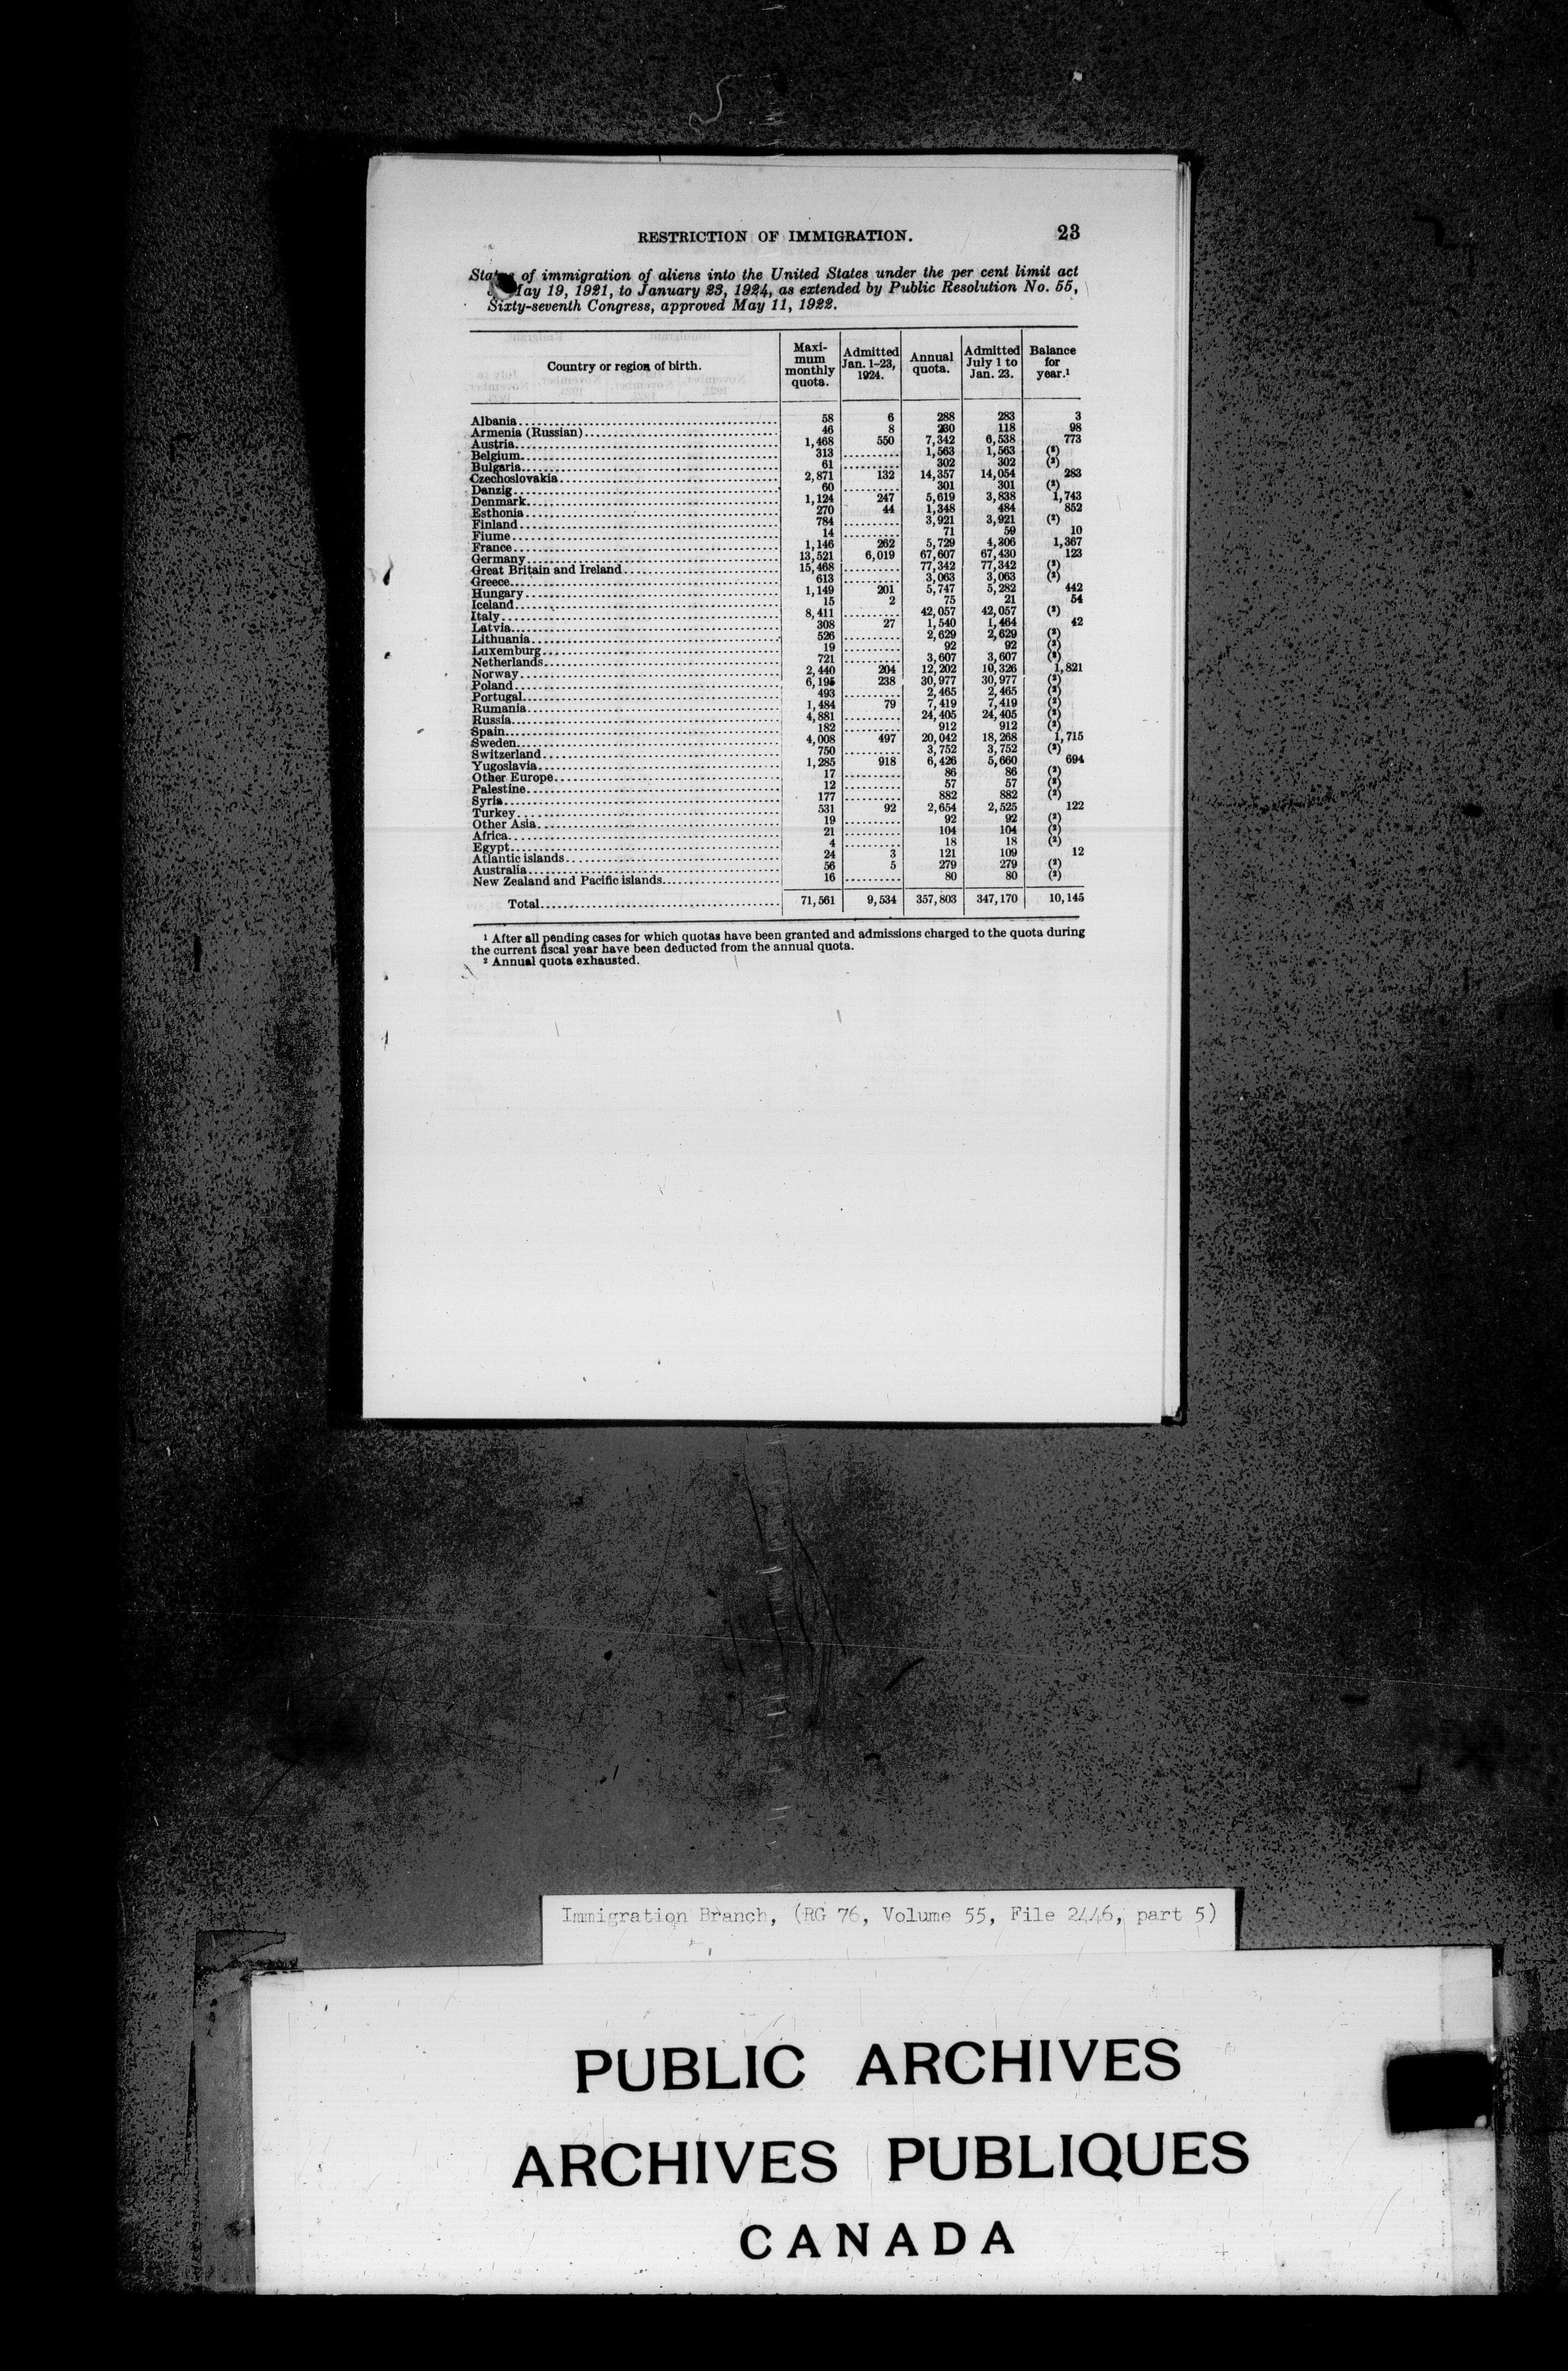 RESTRICTION OF IMMIGRATION. 23
of immigration of aliens into the United States under the per cent limit act
May 19, 1921, to January 23, 1924, as extended by Public Resolution No. 55,
Sixty-seventh Congress, approved May 11, 1922.
Country or region of birth. | Maximum monthly quota. | Admitted Jan. 1-23, 1924. | Annual quota. | Admitted July 1 to Jan. 23. | Balance for year.¹
Albania 58 6 288 283 3
Armenia (Russian) 46 8 230 118 98
Austria 1,468 550 7,342 6,538 773
Belgium 313 1,563 1,563 (²)
Bulgaria 61 302 302 (²)
Czechoslovakia 2,871 132 14,357 14,054 283
Danzig 60 301 301 (²)
Denmark 1,124 247 5,619 3,838 1,743
Esthonia 270 44 1,348 484 852
Finland 784 3,921 3,921 (²)
Fiume 14 71 59 10
France 1,146 262 5,729 4,306 1,367
Germany 13,521 6,019 67,607 67,430 123
Great Britain and Ireland 15,468 77,342 77,342 (²)
Greece 613 3,063 3,063 (²)
Hungary 1,149 201 5,747 5,282 442
Iceland 15 2 75 21 54
Italy 8,411 42,057 42,057 (²)
Latvia 308 27 1,540 1,464 42
Lithuania 526 2,629 2,629 (²)
Luxemburg 19 92 92 (²)
Netherlands 721 3,607 3,607 (²)
Norway 2,440 204 12,202 10,326 1,821
Poland 6,195 238 30,977 30,977 (²)
Portugal 493 2,465 2,465 (²)
Rumania 1,484 79 7,419 7,419 (²)
Russia 4,881 24,405 24,405 (²)
Spain 182 912 912 (²)
Sweden 4,008 497 20,042 18,268 1,715
Switzerland 750 3,752 3,752 (²)
Yugoslavia 1,285 918 6,426 5,660 694
Other Europe 17 86 86 (²)
Palestine 12 57 57 (²)
Syria 177 882 882 (²)
Turkey 531 92 2,654 2,525 122
Other Asia 19 92 92 (²)
Africa 21 104 104 (²)
Egypt 4 18 18 (²)
Atlantic islands 24 3 121 109 12
Australia 56 5 279 279 (²)
New Zealand and Pacific islands 16 80 80 (²)
Total 71,561 9,534 357,803 347,170 10,145
¹ After all pending cases for which quotas have been granted and admissions charged to the quota during
the current fiscal year have been deducted from the annual quota.
² Annual quota exhausted.
Immigration Branch, (RG 76, Volume 55, File 2446, part 5)
PUBLIC ARCHIVES
ARCHIVES PUBLIQUES
CANADA